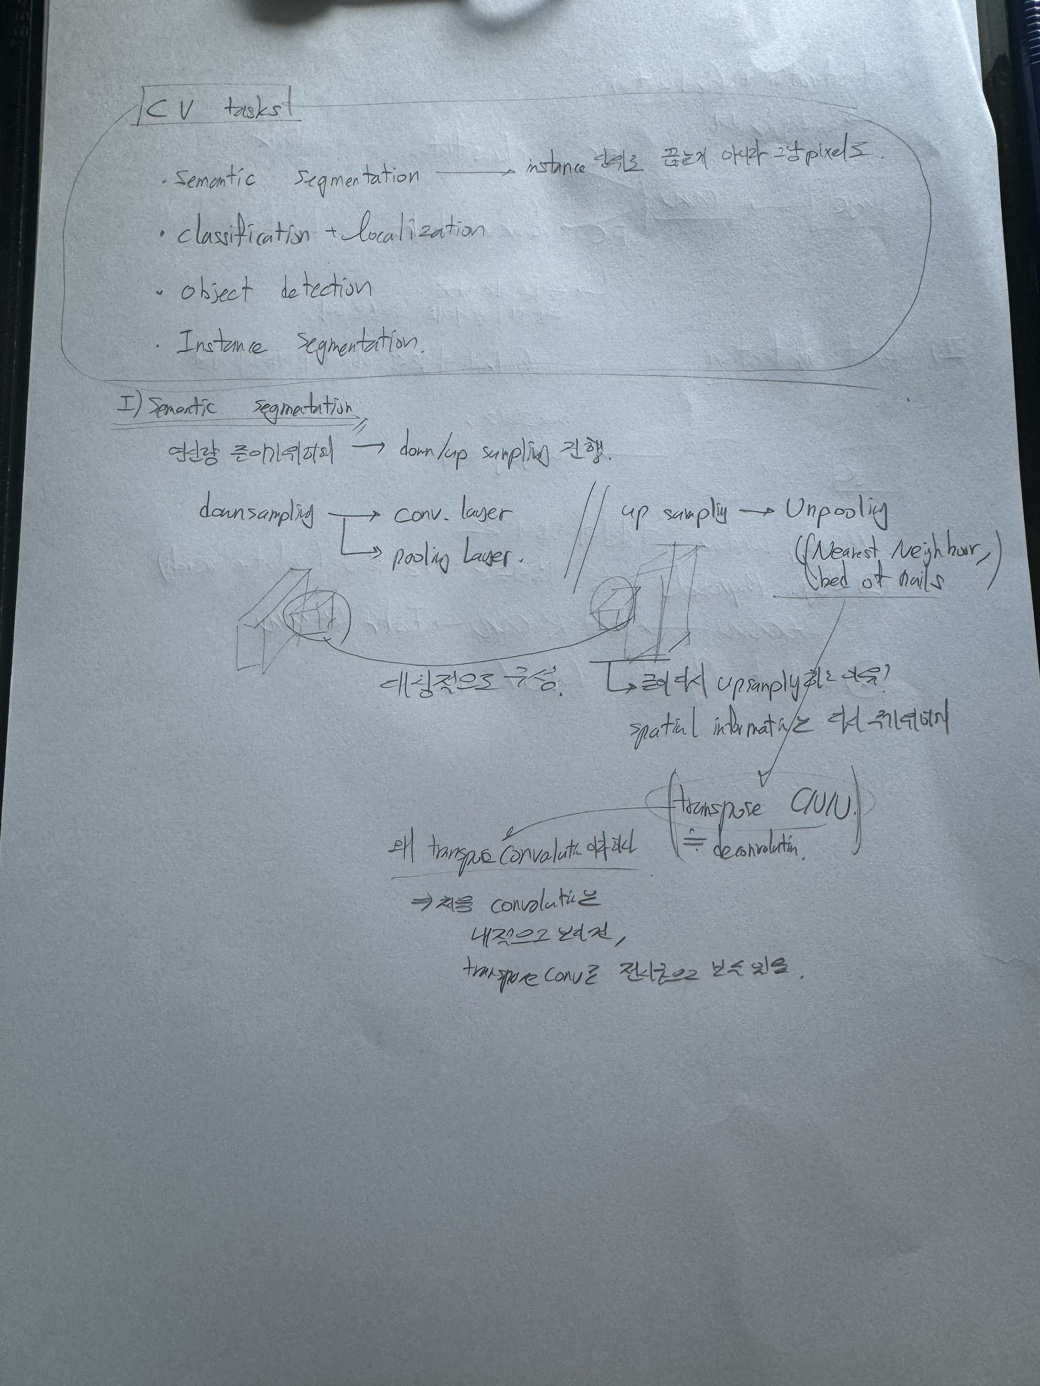 CV tasks
· Semantic Segmentation → instance 단위로 끊는게 아니라 그냥 pixel로.
· classification + localization
· object detection
· Instance Segmentation.
I) Semantic Segmentation
연산량 줄이기위하여 → down/up sampling 진행.
downsampling → conv. layer
→ pooling Layer.
up sampling → Unpooling
(Nearest Neighbour,
bed of nails)
대칭적으로 구성.
→ 굳이 다시 upsampling 하는 이유?
spatial information 다시 주기위하여
(transpose CNN.
≒ deconvolution.)
왜 transpose convolution
⇒ 처음 convolution는
내적으로 보려면,
transpose conv로 전시곱으로 볼수 있음.